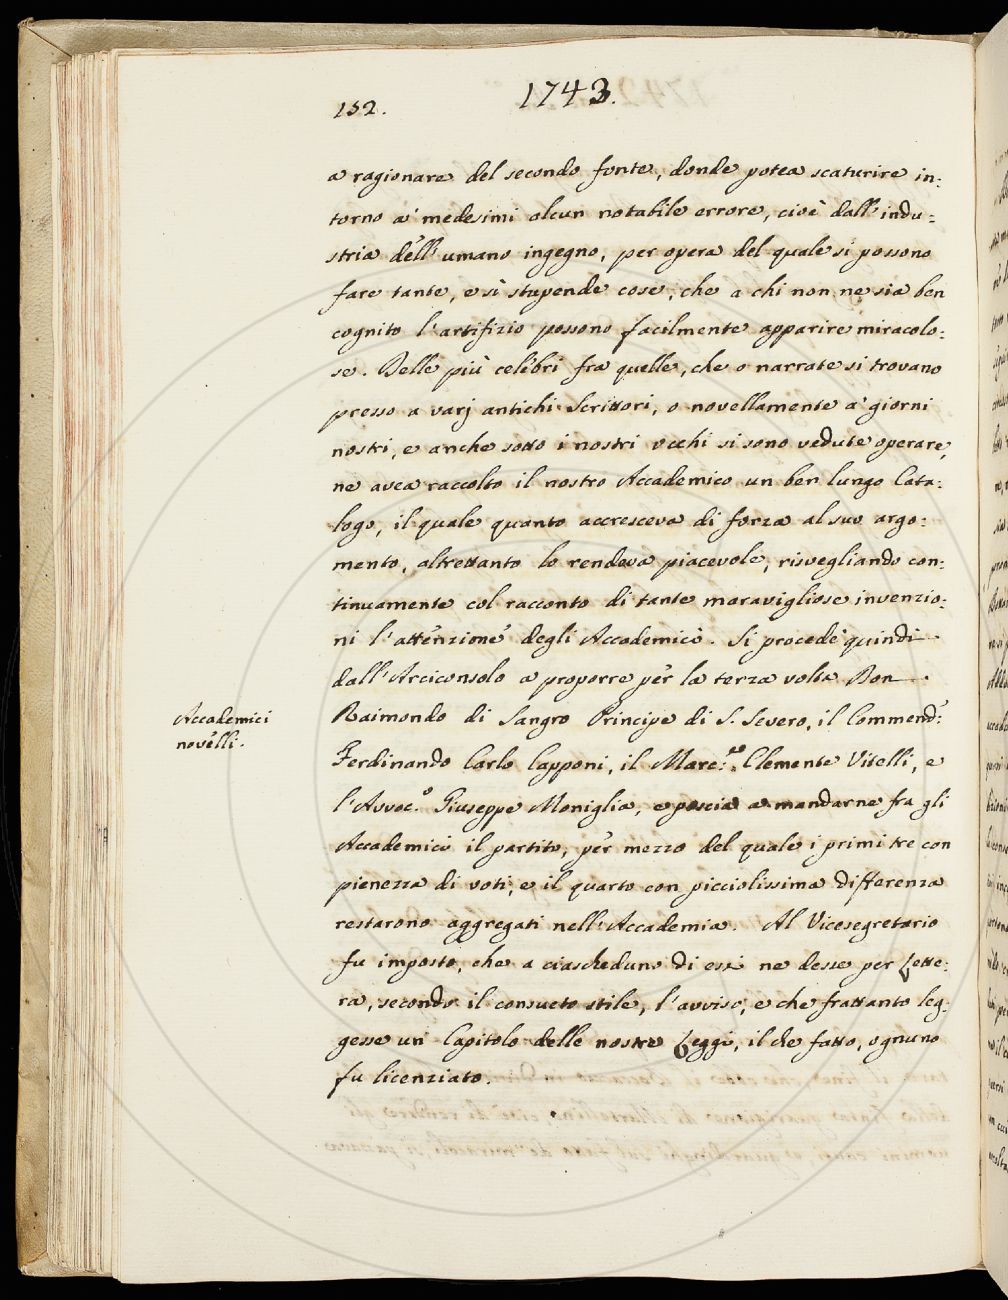 152.
1743.
a ragionare del secondo fonte, donde potea scaturire in:
torno a' medesimi alcun notabile errore, cioè dall'indu:
stria dell'umano ingegno, per opera del quale si possono
fare tante, e sì stupende cose, che a chi non ne sia ben
cognito l'artifizio possono facilmente apparire miracolo:
se. Delle più celebri fra quelle, che o narrate si trovano
presso a varj antichi Scrittori, o novellamente a' giorni
nostri, e anche sotto i nostri occhi si sono vedute operare,
ne avea raccolto il nostro Accademico un ben lungo Cata:
logo, il quale quanto accresceva di forza al suo argo:
mento, altrettanto lo rendeva piacevole, risvegliando con:
tinuamente col racconto di tante maravigliose invenzio:
ni l'attenzione degli Accademici. Si procedè quindi
dall'Arciconsolo a proporre per la terza volta Don
Accademici
novelli.
Raimondo di Sangro Principe di S. Severo, il Commend.:
Ferdinando Carlo Capponi, il Marc:se Clemente Vitelli, e
l'Avvoc.o Giuseppe Moniglia, e poscia a mandarne fra gli
Accademici il partito, per mezzo del quale i primi tre con
pienezza di voti, e il quarto con picciolissima differenza
restarono aggregati nell'Accademia. Al Vicesegretario
fu imposto, che a ciascheduno di essi ne desse per Lette:
ra, secondo il consueto stile, l'avviso, e che frattanto leg:
gesse un Capitolo delle nostre Leggi, il che fatto, ognuno
fu licenziato.